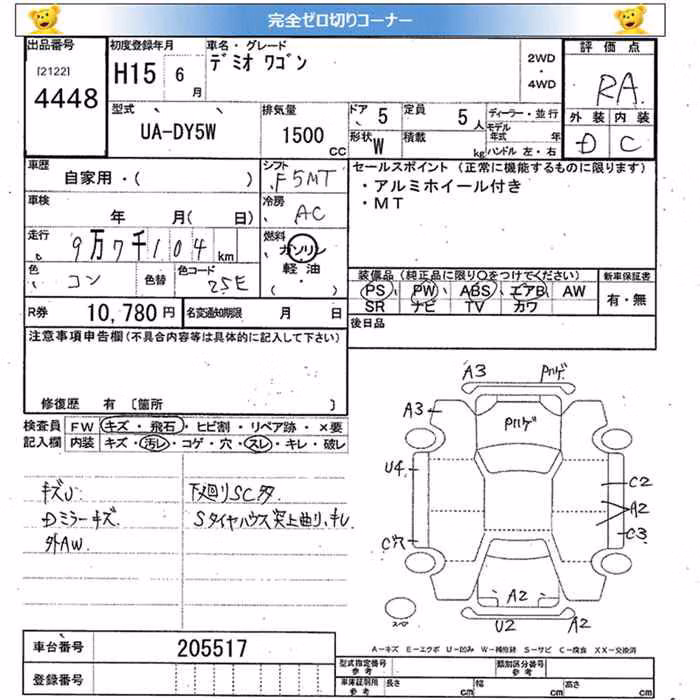 完全ゼロ切りコーナー
出品番号
[2122]
4448
初度登録年月
H15 6月
車名・グレード
デミオ ワゴン
2WD
・
4WD
評価点
RA
外装 内装
D C
型式
UA-DY5W
排気量
1500 CC
ドア 5
形状 W
定員 5人
積載 kg
ディーラー・並行
モデル年式 年
ハンドル 左・右
車歴
自家用・( )
シフト
F5MT
セールスポイント (正常に機能するものに限ります)
・アルミホイール付き
・MT
車検
年 月( 日)
冷房
AC
走行
9万7千104 km
燃料
ガソリン
軽油
( ・ )
色
コン
色替
色コード
25E
装備品 (純正品に限り○をつけてください)
PS PW ABS エアB AW
SR ナビ TV カワ
新車保証書
有・無
R券 10,780 円
名変通知期限 月 日
後日品
注意事項申告欄 (不具合内容等は具体的に記入して下さい)
修復歴 有 〔箇所 〕
検査員記入欄
FW キズ・飛石・ヒビ割・リペア跡・×要
内装 キズ・汚レ・コゲ・穴・スレ・キレ・破レ
キズU
Dミラーキズ
外AW.
下廻りSC多
Sタイヤハウス突上曲り、キレ
A3
Pハゲ
A3
Pハゲ
U4
C2
A2
C穴
C3
A2
U2
A2
スペア
A-キズ E-エクボ U-凹み W-補修跡 S-サビ C-腐食 XX-交換済
車台番号 205517
登録番号
型式指定番号 参考
類別区分番号 参考
車庫証明用 参考
長さ cm
幅 cm
高さ cm